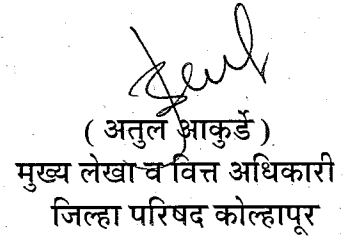 ( अतुल आकुर्डे )
मुख्य लेखा व वित्त अधिकारी
जिल्हा परिषद कोल्हापूर